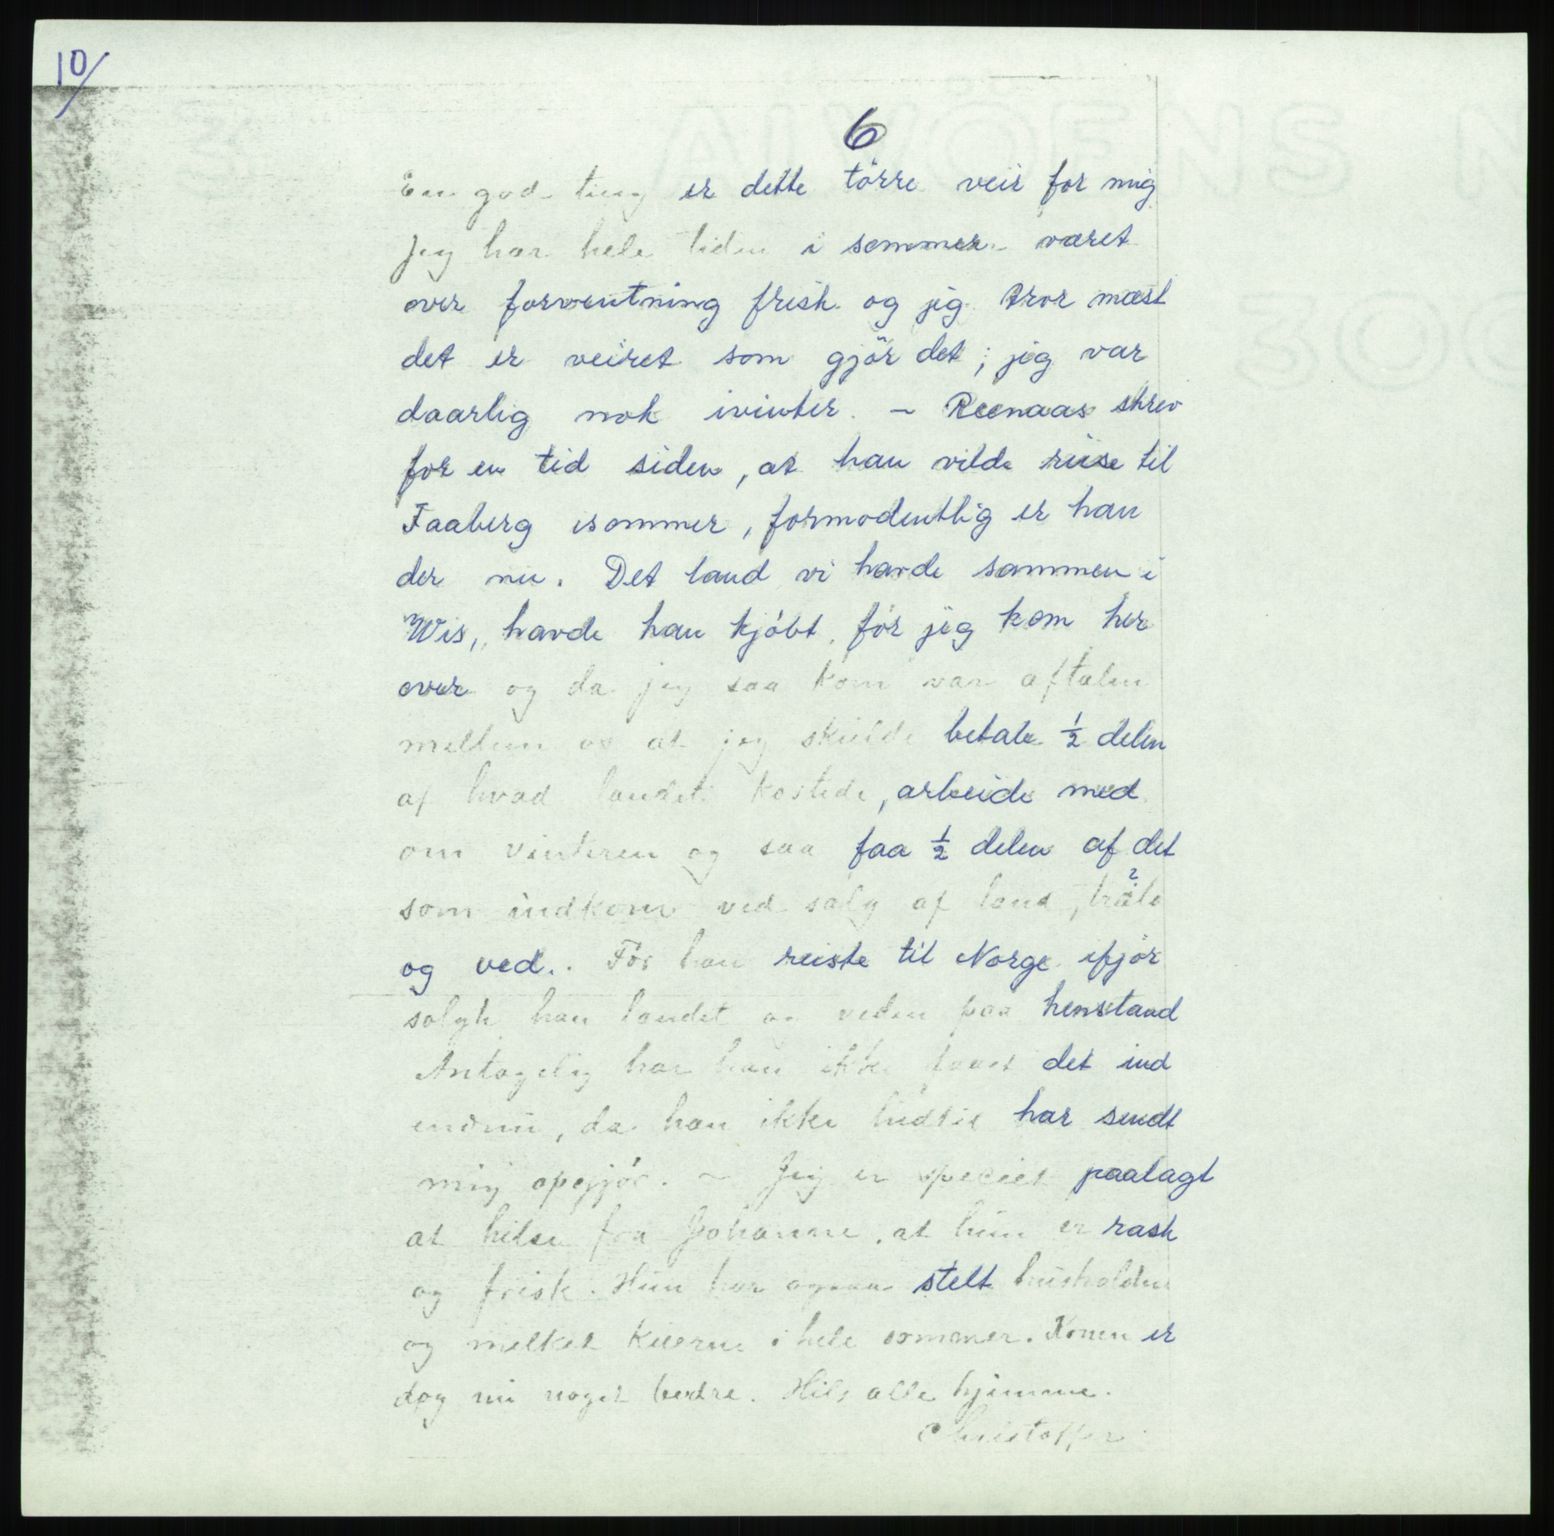 10/
6
En god ting er dette törre veir for mig
Jeg har hele tiden i sommer været
over forventning frisk og jeg tror mæst
det er veiret som gjör det; jeg var
daarlig nok ivinter. - Reenaas skrev
for en tid siden, at han vilde reise til
Faaberg isommer, formodentlig er han
der nu. Det land vi havde sammen i
Wis, havde han kjöbt för jeg kom her
over og da jeg saa kom var aftalen
mellem os at jeg skulde betale ½ delen
af hvad landet kostede, arbeide med
om vinteren og saa faa ½ delen af det
som indkom ved salg af land,
og ved. För han reiste til Norge ifjör
solgte han landet og veden paa henstand
Antagelig har han ikke faaet det ind
endnu, da han ikke hidtil har sendt
mig opgjör. - Jeg er speciel paalagt
at hilse fra Johanne, at hun er rask
og frisk. Hun har ogsaa stelt husholden
og melket kuerne i hele sommer. Konen er
dog nu noget bedre. Hils alle hjemme.
Christoffer